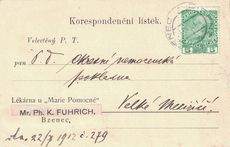 Korespondenční lístek.
Velectěný P. T.
pan P. T. Okresní nemocenská
pokladna
Lékárna u „Marie Pomocné“
Velké Meziříčí
Mr. Ph. K. FUHRICH,
Brenec,
22/X 1912 č 279